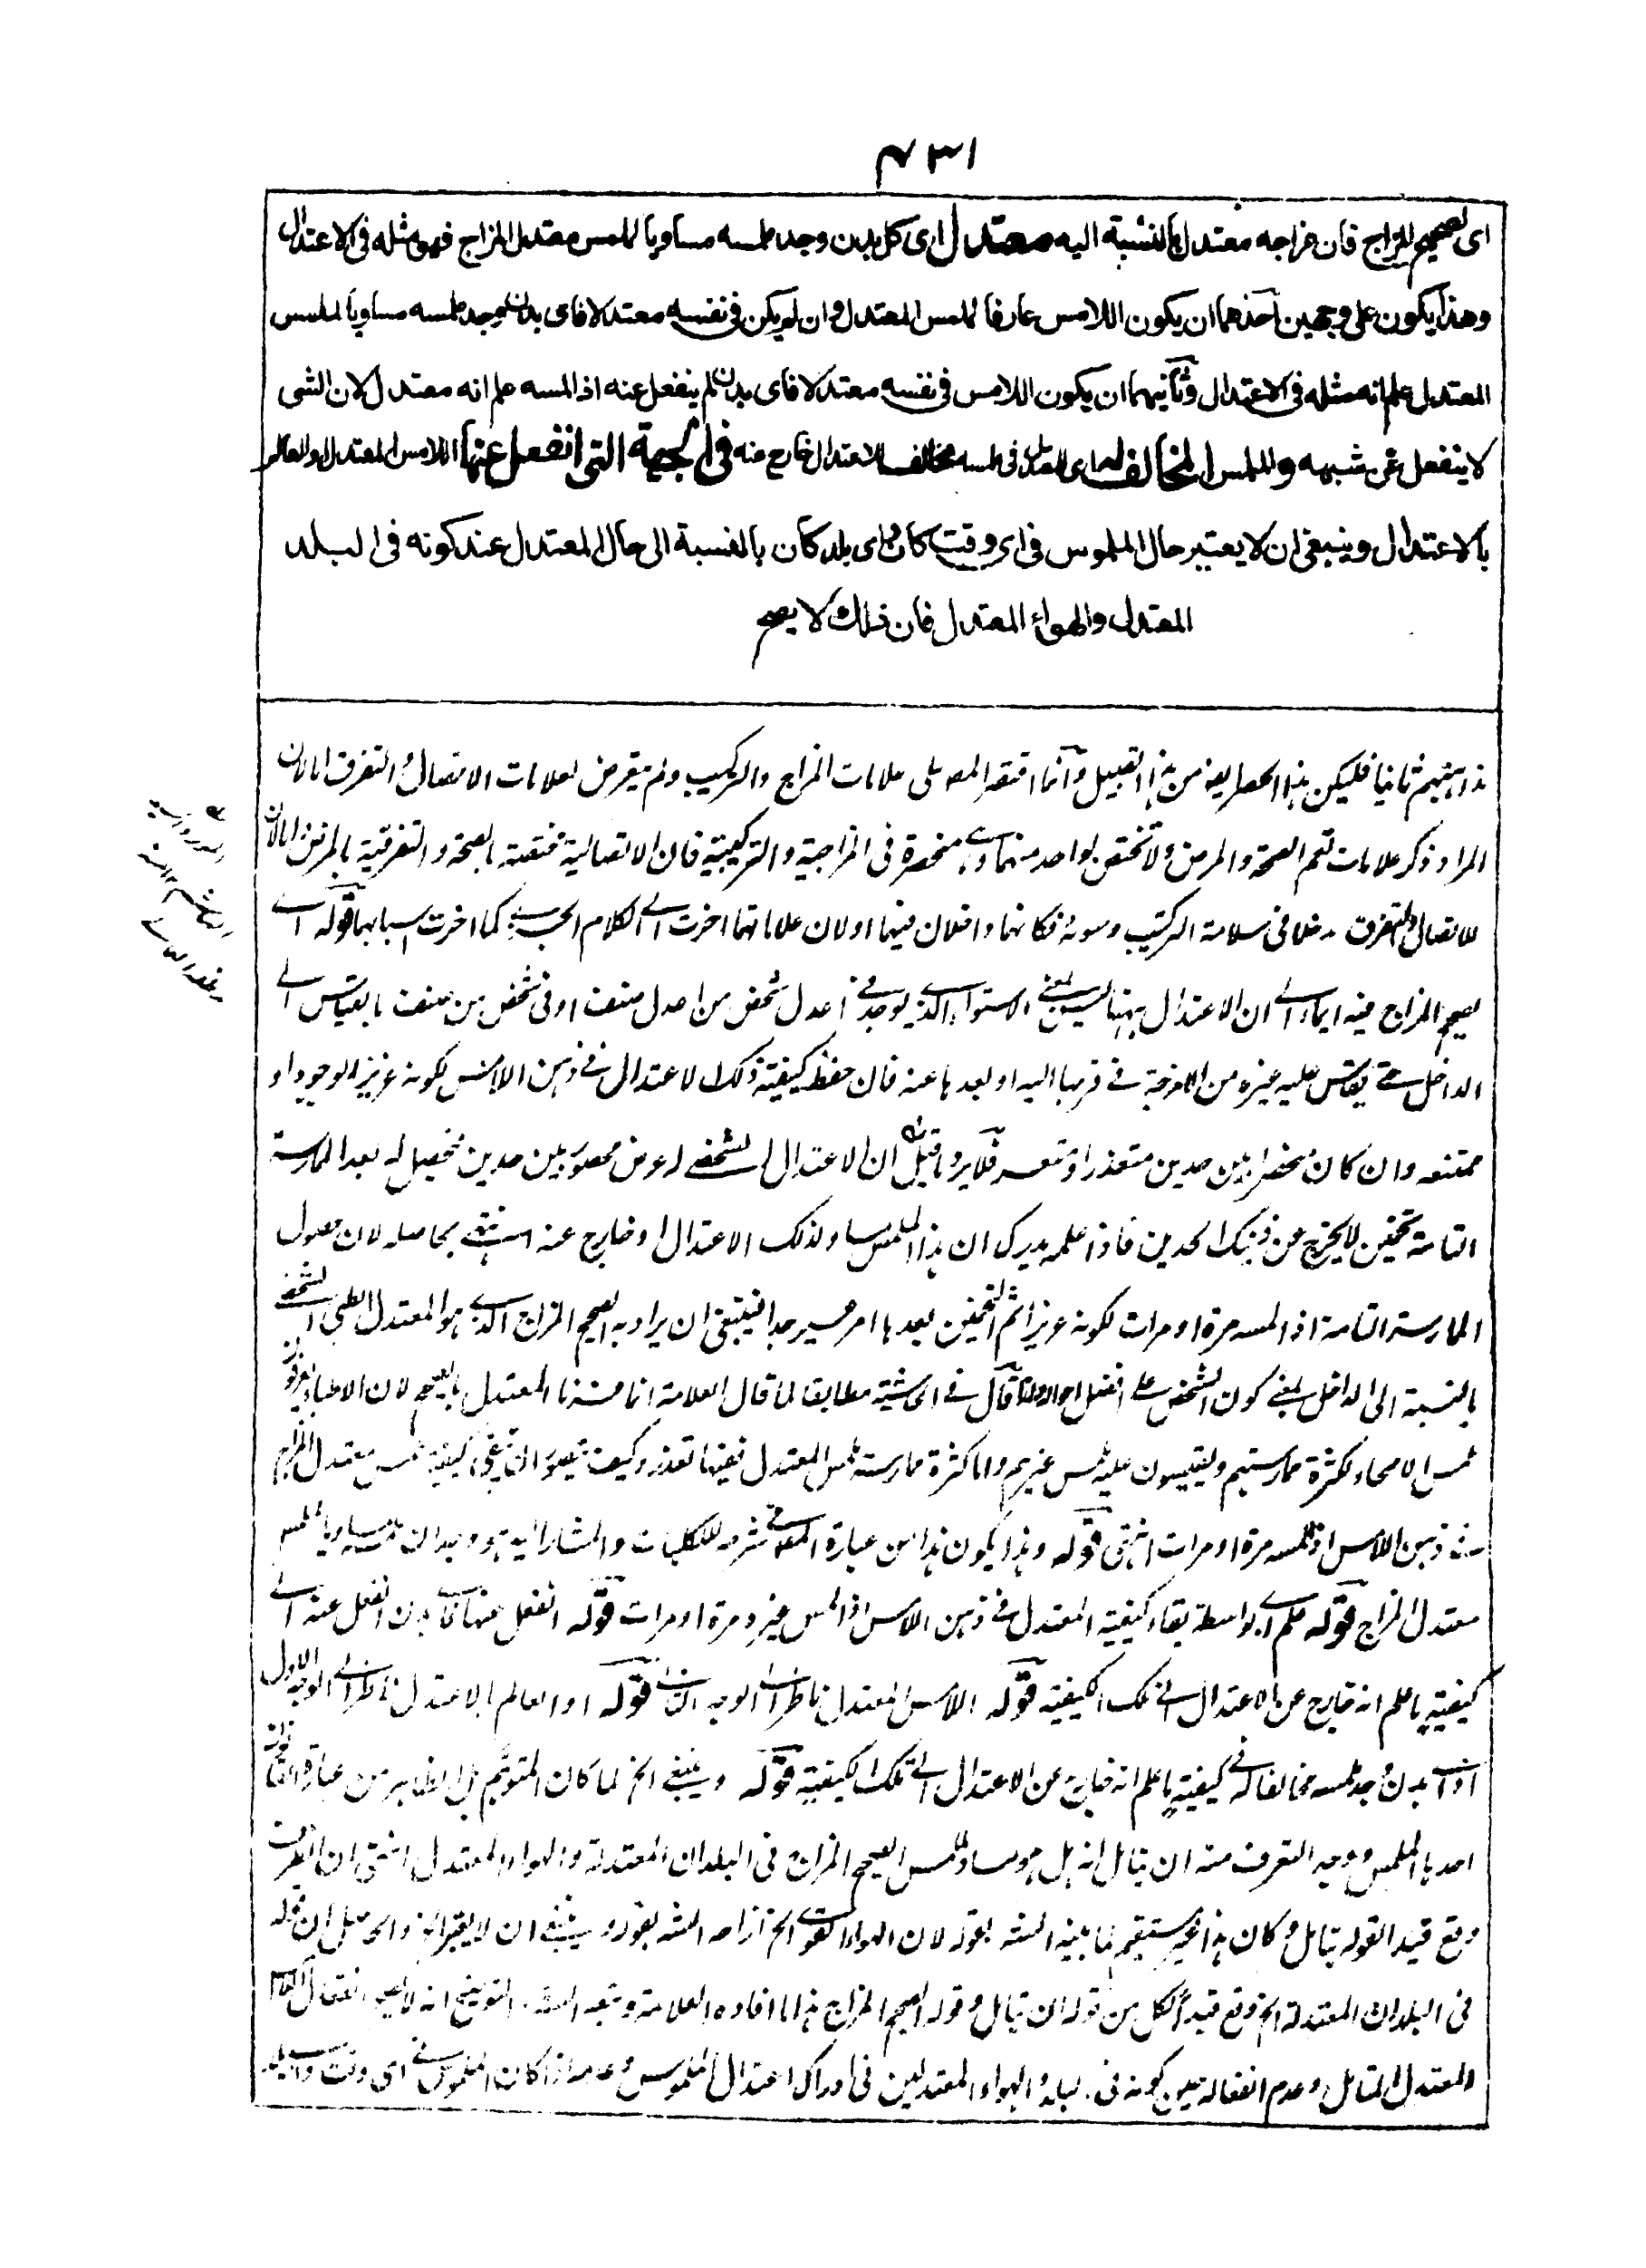 ٤٣١
اى لصحيح المزاج فان مزاجه معتدل بالنسبة اليه معتدل اى كل بدن وجد ملمسه مساويا للمس معتدل المزاج فهو مثله فى الاعتدال
وهذا يكون على وجهين احدهما ان يكون اللامس عارفا للمس المعتدل وان لم يكن فى نفسه معتدلا فاى بدن وجد ملمسه مساويا لملمس
المعتدل علم انه مثله فى الاعتدال وثانيهما ان يكون اللامس فى نفسه معتدلا فاى بدن لم ينفعل عنه اذ المسه علم انه معتدل لان الشى
لا ينفعل عن شبهه والملمس المخالف له اى للمعتدل فى لمسه مخالف للاعتدال خارج عنه فى الجهة التى انفعل عنها اللامس المعتدل او العالم
بالاعتدال وينبغى ان لا يعتبر حال الملموس فى اى وقت كان واى بلد كان بالنسبة الى حال المعتدل عند كونه فى البلد
المعتدل والهواء المعتدل فان ذلك لا يصح
ثانيا فليكن هذا الحصر ايضا من هذا القبيل وانما اقتصر المص على علامات المزاج والتركيب ولم يتعرض لعلامات الاتصال والتفرق اما لان
المراد ذكر علامات تعم الصحة والمرض ولا تختص بواحد منهما وهى منحصرة فى المزاجية والتركيبية فان الاتصالية مختصة بالصحة والتفرقية بالمرض او لان
للاتصال والتفرق دخلا فى سلامة التركيب وسوئه فكانهما داخلان فيهما او لان علاماتهما اخرت الى الكلام الجزئى كما اخرت اسبابهما قوله اى
لصحيح المزاج فيه ايماء الى ان الاعتدال ههنا ليس بمعنى الاستواء الذى يوجد فى اعدل شخص من اعدل صنف او فى شخص من صنف بالقياس الى
الداخل حتى يقاس عليه غيره من الامزجة فى قربها اليه او بعدها عنه فان حفظ كيفية ذلك الاعتدال فى ذهن اللامس لكونه عزيز الوجود او
ممتنعه وان كان منحصرا بين حدين متعذر او متعسر فلا يرد ما قيل ان الاعتدال الشخصى له عرض محصور بين حدين فحصل له بعد الممارسة
التامة تخمين لا يخرج من ذينك الحدين فاذا علمه يدرك ان هذا الملمس مساو لذلك الاعتدال او خارج عنه انتهى بحاصله لان حصول
الممارسة التامة اذ المسه مرة او مرات لكونه عزيزا ثم التخمين بعدها امر عسير جدا فينبغى ان يراد به الصحيح المزاج الذى هو المعتدل الطبى الشخصى
بالنسبة الى الداخل بمعنى كون الشخص على افضل احواله ولذا قال فى الحاشية مطابقا لما قال العلامة انما فسرنا المعتدل بالصحيح لان الاطباء يعرفون
لمس الاصحاء لكثرة ممارستهم ويقيسون عليه لمس غيرهم واما كثرة ممارسة لمس المعتدل ففيها تعذر وكيف يتصور ان تبقى كيفية لمس معتدل المزاج
فى ذهن اللامس اذ المسه مرة او مرات انتهى قوله وهذا يكون هذا من عبارة المص فى شرحه للكليات والمشار اليه هو وجدان ملمسه مساويا لملمس
معتدل المزاج قوله علم اى بواسطة بقاء كيفية المعتدل فى ذهن اللامس اذ المس غيره مرة او مرات قوله انفعل عنها فاى بدن انفعل عنه الى
كيفية ما علم انه خارج عن الاعتدال الى تلك الكيفية قوله اللامس المعتدل ناظر الى الوجه الثانى قوله او العالم بالاعتدال ناظر الى الوجه الاول
اى بدن وجد ملمسه مخالفا له فى كيفية ما علم انه خارج عن الاعتدال الى تلك الكيفية قوله وينبغى الخ لما كان المتوهم بل الظاهر من عبارة القانون
احدها الملمس ووجه التعرف منه ان يتامل انه هل هو مساو للمس الصحيح المزاج فى البلدان المعتدلة والهواء المعتدل انتهى ان الظرف
وقع قيدا لقوله يتامل وكان هذا غير مستقيم لما بينه الشه بقوله لان الهواء القوى الخ ازاحه الشه بقوله وينبغى ان لا يعتبر الخ والحاصل ان قوله
فى البلدان المعتدلة الخ وقع قيدا لكل من قوله ان يتامل وقوله الصحيح المزاج هذا ما افاده العلامة وتبعه الشه التوضيح انه لا يصح انفعال
المعتدل المتامل وعدم انفعاله حين كونه فى البلد والهواء المعتدلين فى ادراك اعتدال الملموس وعدمه اذا كان الملموس فى اى وقت واى بلد